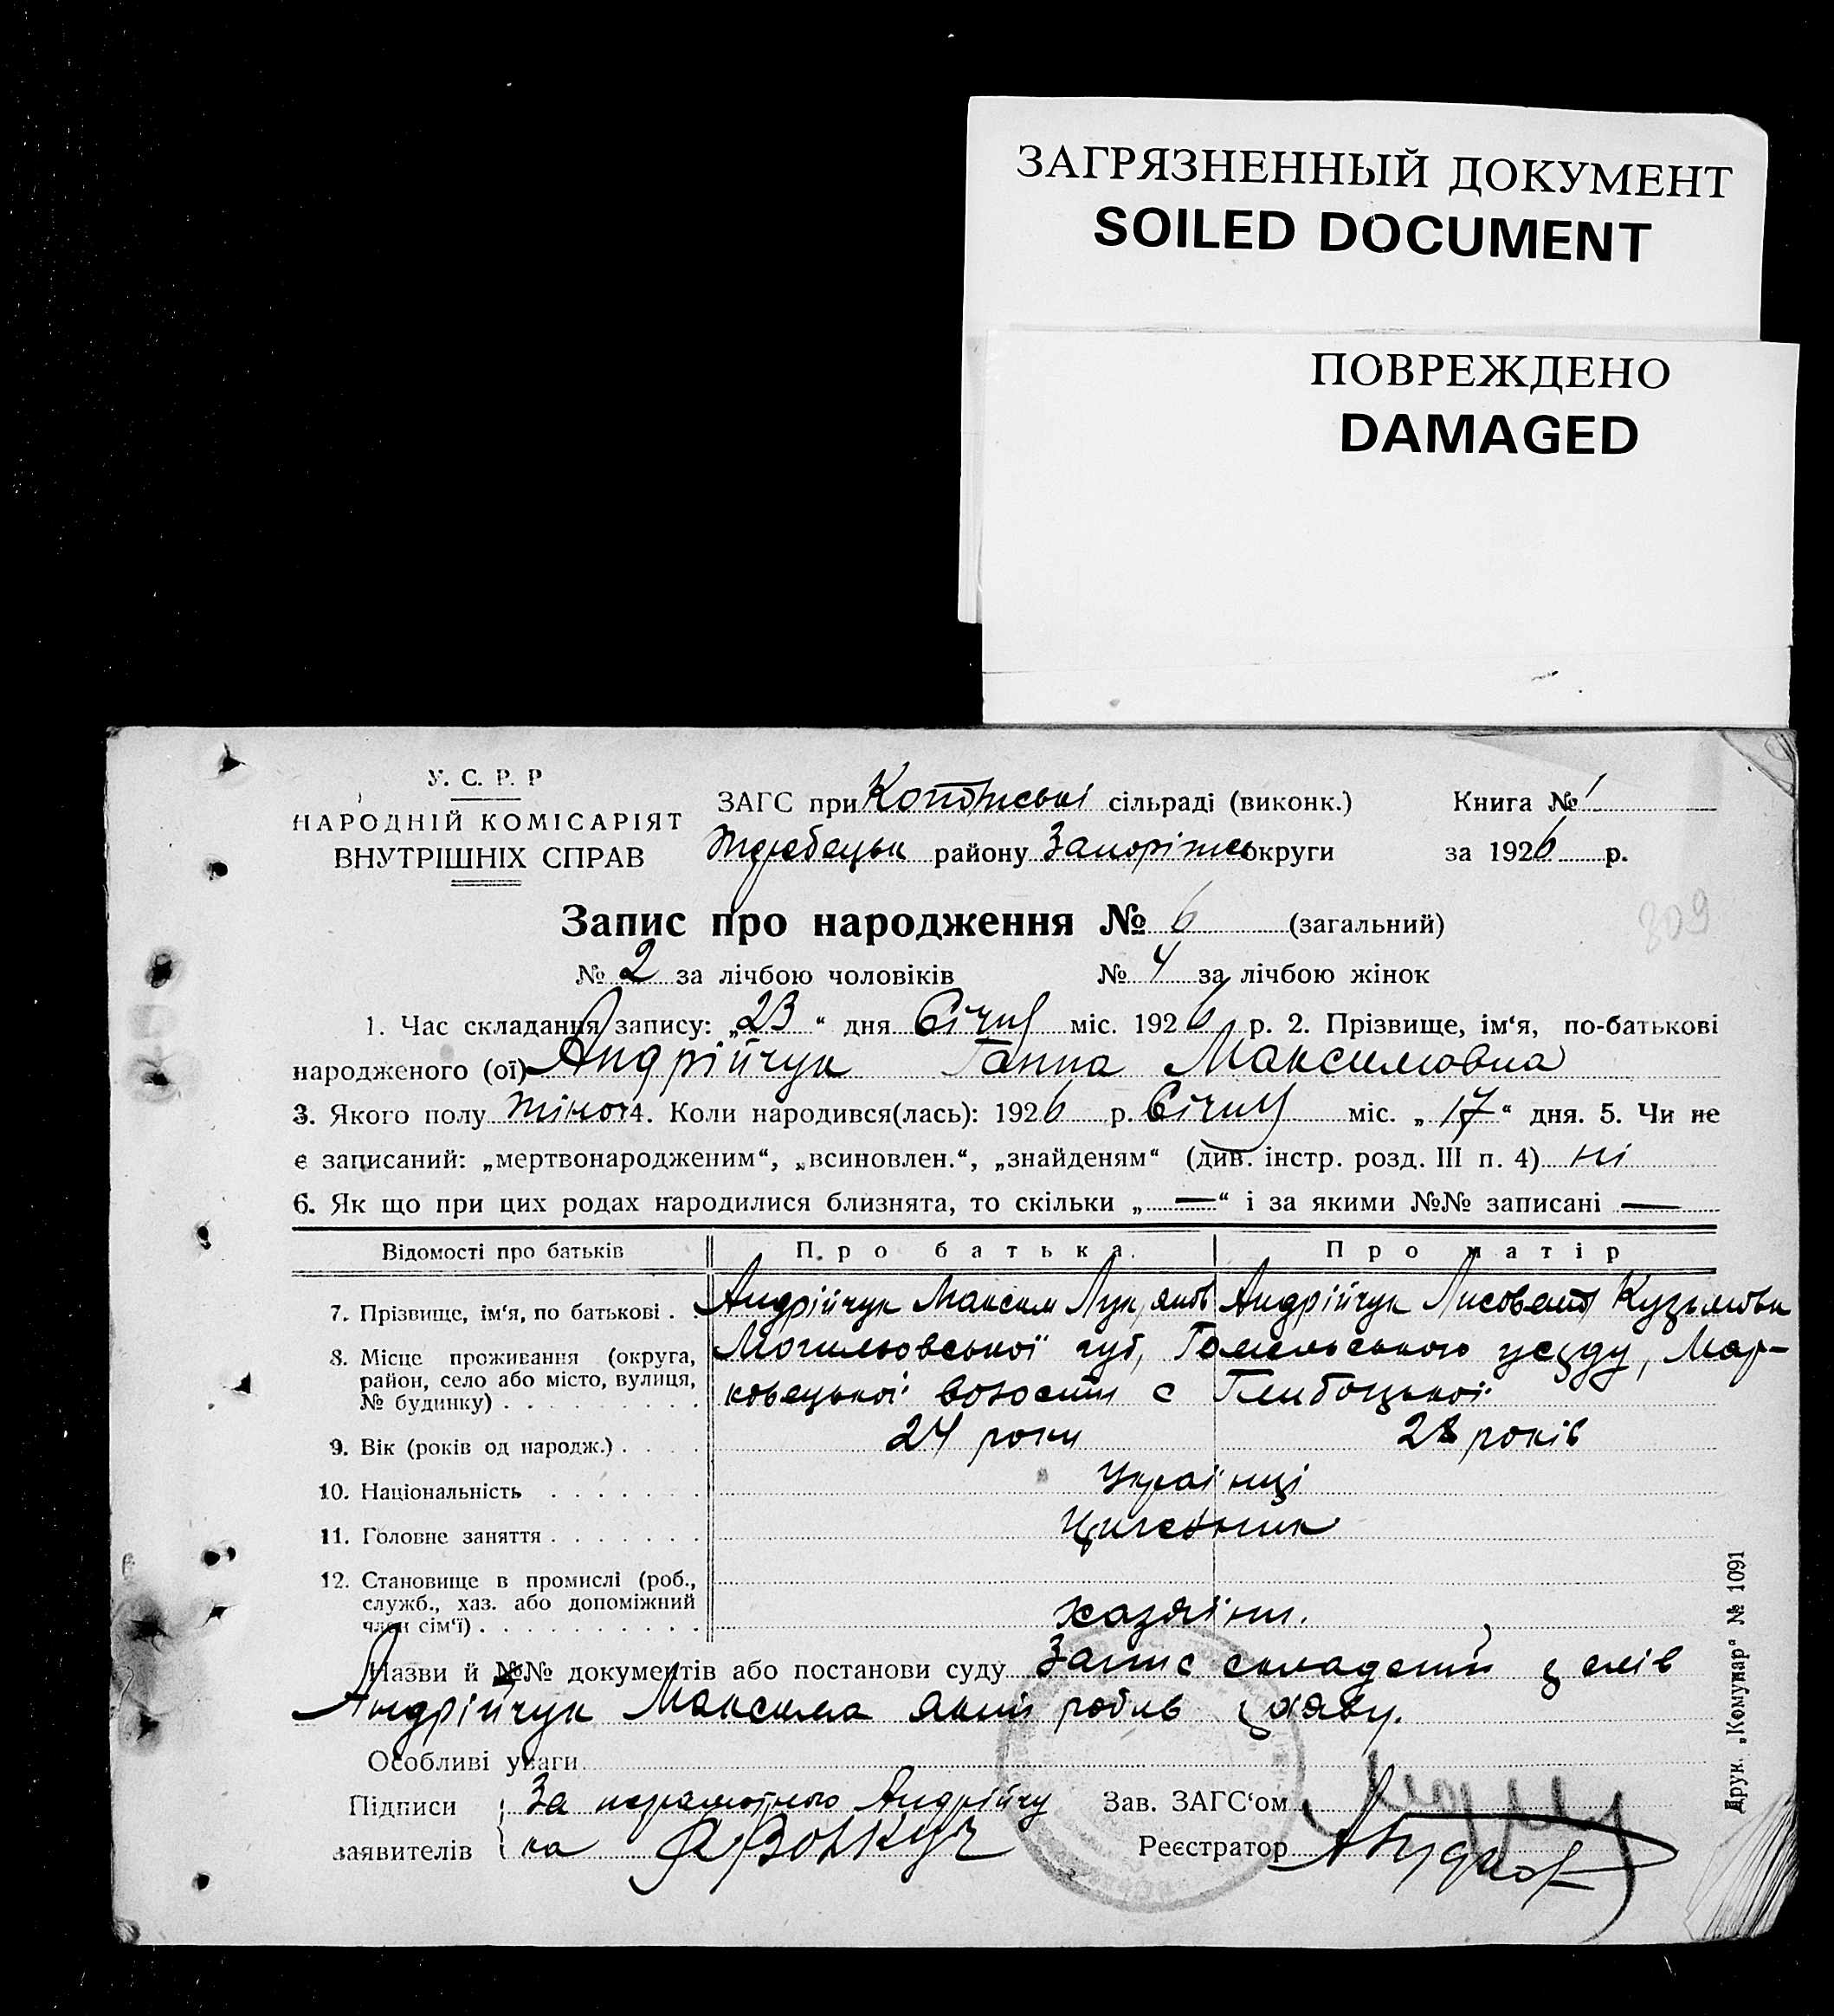 ЗАГРЯЗНЕННЫЙ ДОКУМЕНТ
SOILED DOCUMENT
ПОВРЕЖДЕНО
DAMAGED
У. С. Р. Р
НАРОДНІЙ КОМІСАРІЯТ
ВНУТРІШНІХ СПРАВ
ЗАГС при сільраді (виконк.)
району Запоріжсь округи
Книга № 1
за 1926 р.
Запис про народження № 6 (загальний)
309
№ 2 за лічбою чоловіків № 4 за лічбою жінок
1. Час складання запису: „23“ дня Січня міс. 1926 р. 2. Прізвище, ім‘я, по-батькові
народженого (ої) Андрійчук Ганна Максимовна
3. Якого полу жіноч 4. Коли народився(лась): 1926 р. Січня міс. „17“ дня. 5. Чи не
є записаний: „мертвонародженим“, „всиновлен.“, „знайденям“ (див. інстр. розд. III п. 4) ні
6. Як що при цих родах народилися близнята, то скільки „—“ і за якими №№ записані —
Відомості про батьків Про батька. Про матір
7. Прізвище, ім‘я, по батькові . . Андрійчук Максим Лук‚янов Андрійчук Лисовета Кузьмовн
8. Місце проживання (округа, район, село або місто, вулиця, № будинку) . . . . . . . . .
Могильовської губ, Гомельського уєзду, Мар-
ковецької волости с Глибоцької
9. Вік (років од народж.) . . . . 24 роки 28 років
10. Національність . . . . . . . Українці
11. Головне заняття . . . . . . .
12. Становище в промислі (роб., служб., хаз. або допоміжний член сім‘ї) . . . . . . . . . . хазяіни.
Назви й №№ документів або постанови суду Запис складений з слів
Андрійчук Максима який робив заяву.
Особливі уваги
Підписи заявителів За неграмотного Андрійчу
ка
Зав. ЗАГС‘ом
Реєстратор
Друк. „Комунар“ № 1091